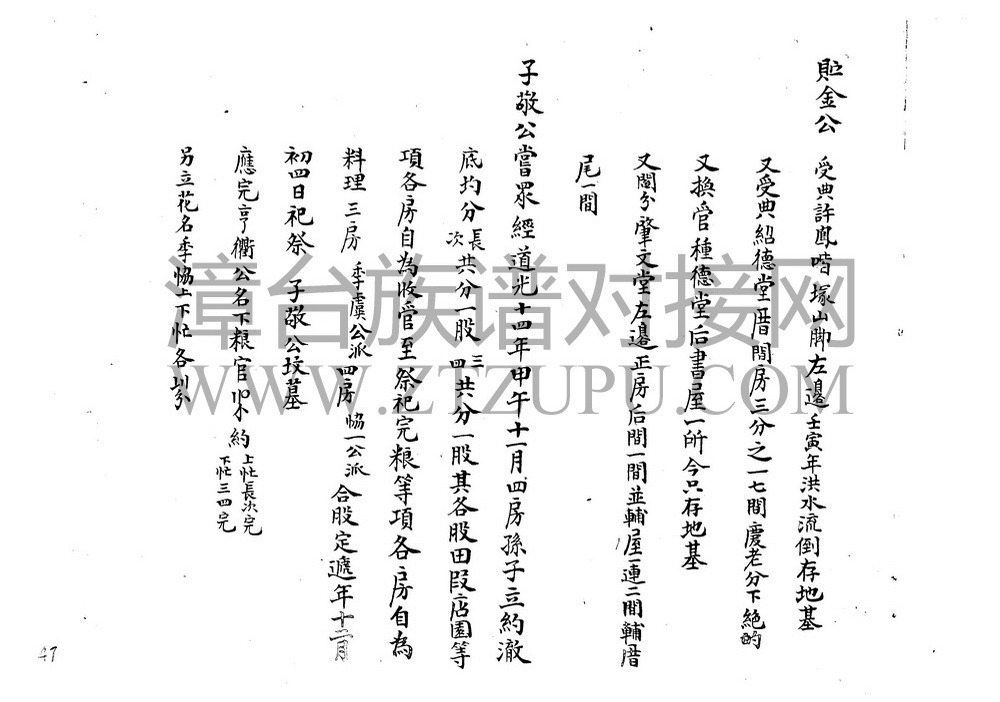 貯金公 受典許鳳喈塚山脚左邊壬寅年洪水流倒存地基
又受典紹德堂厝間房三分之一七間慶老分下絕的
又換管種德堂后書屋一所今只存地基
又鬮分肇文堂左邊正房后間一間並輔屋一連二間輔厝
尾一間
子敬公嘗眾經道光十四年甲午十一月四房孫子立約澈
底均分長次共分一股三四共分一股其各股田段店園等
項各房自為收管至祭祀完粮等項各房自為
料理三房季虞公派四房恊一公派合股定遞年十二月
初四日祀祭 子敬公坟墓
應完亨衢公名下粮官約上忙長次完下忙三四完
另立花名季恊上下忙各
漳台族谱对接网
WWW.ZTZUPU.COM
47